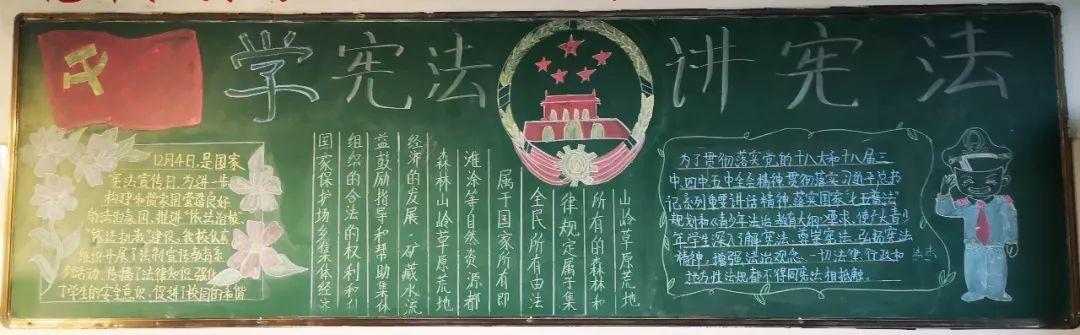 学宪法 讲宪法
12月4日,是国家
宪法宣传日,为进一步
构建和谐家园营造良好
的法治氛围,推进"依法治校、
"依法执教"建设,我校认真
组织开展了法制宣传教育系
列活动,传播了法律知识,强化
了学生的安全意识,促进了校园的和谐
山岭草原荒地
所有的森林和
律规定属于集
全民所有由法
属于国家所有即
滩涂等自然资源都
森林山岭草原荒地
经济的发展·矿藏水流
益鼓励指导和帮助集体
组织的合法的权利和利
国家保护场乡集体经济
为了贯彻落实党的十八大和十八届三
中、四中、五中全会精神,贯彻落实习近平总书
记系列重要讲话精神,落实国家"七五普法"
规划和《青少年法治教育大纲》要求,使广大青少
年学生深入了解宪法、尊崇宪法、弘扬宪法
精神,增强法治观念。一切法律、行政和
地方性法规都不得同宪法相抵触。